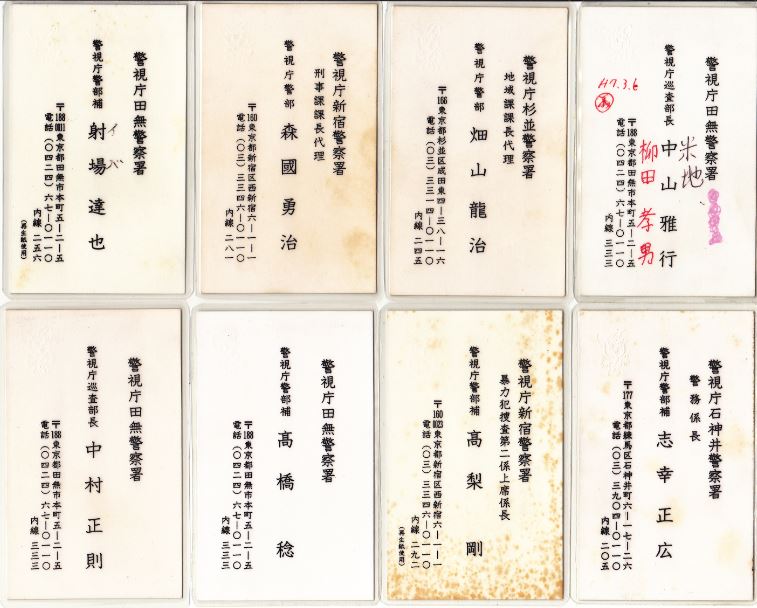 警視庁田無警察署
警視庁警部補 射場達也
イバ
〒188-0011東京都田無市本町五ー二ー五
電話(〇四二四)六七ー〇一一〇
内線 二五六
(再生紙使用)
警視庁新宿警察署
刑事課課長代理
警視庁警部 森國勇治
〒160東京都新宿区西新宿六ー一ー一
電話(〇三)三三四六ー〇一一〇
内線 二八一
警視庁杉並警察署
地域課課長代理
警視庁警部 畑山龍治
〒166東京都杉並区成田東四ー三八ー一六
電話(〇三)三三一四ー〇一一〇
内線 二四五
警視庁田無警察署
米地
警視庁巡査部長 中山雅行
柳田孝男
H7.3.6
〒188東京都田無市本町五ー二ー五
電話(〇四二四)六七ー〇一一〇
内線 三三三
警視庁田無警察署
警視庁巡査部長 中村正則
〒188東京都田無市本町五ー二ー五
電話(〇四二四)六七ー〇一一〇
内線 三三三
警視庁田無警察署
警視庁警部補 髙橋稔
〒188東京都田無市本町五ー二ー五
電話(〇四二四)六七ー〇一一〇
内線 三三三
警視庁新宿警察署
暴力犯捜査第二係上席係長
警視庁警部補 高梨剛
〒160-0023東京都新宿区西新宿六ー一ー一
電話(〇三)三三四六ー〇一一〇
内線 二九二
(再生紙使用)
警視庁石神井警察署
警務係長
警視庁警部補 志幸正広
〒177東京都練馬区石神井町六ー一七ー二六
電話(〇三)三九〇四ー〇一一〇
内線 二〇五